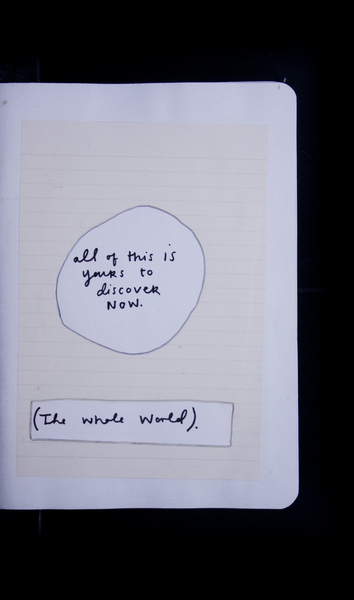 all of this is
yours to
discover
NOW.
(The whole world).